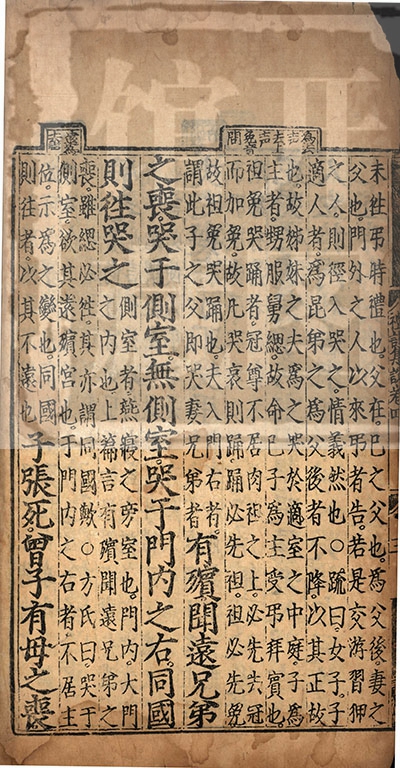 未徃弔時禮也。父在。已之父也。為父後。妻之
父也。門外之人以來弔者告。若是交游習狎
之人。則徑入哭之。情義然也○疏曰。女子子
適人者。為昆弟之為父後者不降。以其正故
也。故姊妹之夫為之哭於適室之中庭。子為
主者。甥服舅緦。故命已子為主受弔拜賓也。
袒免哭踊者。冠尊不居肉袒之上。必先去冠
而加免。故凡哭哀則踊。踊必先袒。袒必先免
故袒免哭踊也。夫入門右者。
謂此子之父即哭妻兄弟者
有殯聞遠兄弟
之喪。哭于側室。無側室哭于門内之右。同國
則徃哭之
側室者燕寢之旁室也。門内。大門
之内也。上篇言有殯聞遠兄弟之
喪。雖緦必徃。其亦謂同國歟○方氏曰。哭于
側室。欲其遠殯宮也。于門内之右者。不居主
位。示為之變也。同國
則徃者。以其不遠也
子張死。曾子有母之喪